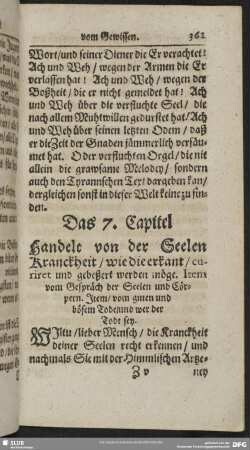 vom Gewissen. 362
Wort/und seiner Diener die Er verachtet!
Ach und Weh / wegen der Armen die Er
verlassen hat! Ach und Weh / wegen der
Boßheit / die er nicht gemeidet hat! Ach
und Weh über die verfluchte Seel / die
nach allem Muhtwillen gedurstet hat / Ach
und Weh über seinen letzten Odem / daß
er die Zeit der Gnaden jämmerlich versäu-
met hat. O der verfluchten Orgel / die nit
allein die grawsame Melodey / sondern
auch den Tyrannschen Text dargeben kan /
dergleichen sonst in dieser Welt keine zu fin-
den.
Das 7. Capitel
Handelt von der Seelen
Kranckheit / wie die erkant / cu-
riret und gebessert werden möge. Item
vom Gespräch der Seelen und Cör-
pern. Item / vom guten und
bösem Tode und wer der
Todt sey.
Wiltu / lieber Mensch / die Kranckheit
deiner Seelen recht erkennen / und
nachmals Sie mit der Himmlischen Artze-
Z v ney
SLUB
DFG